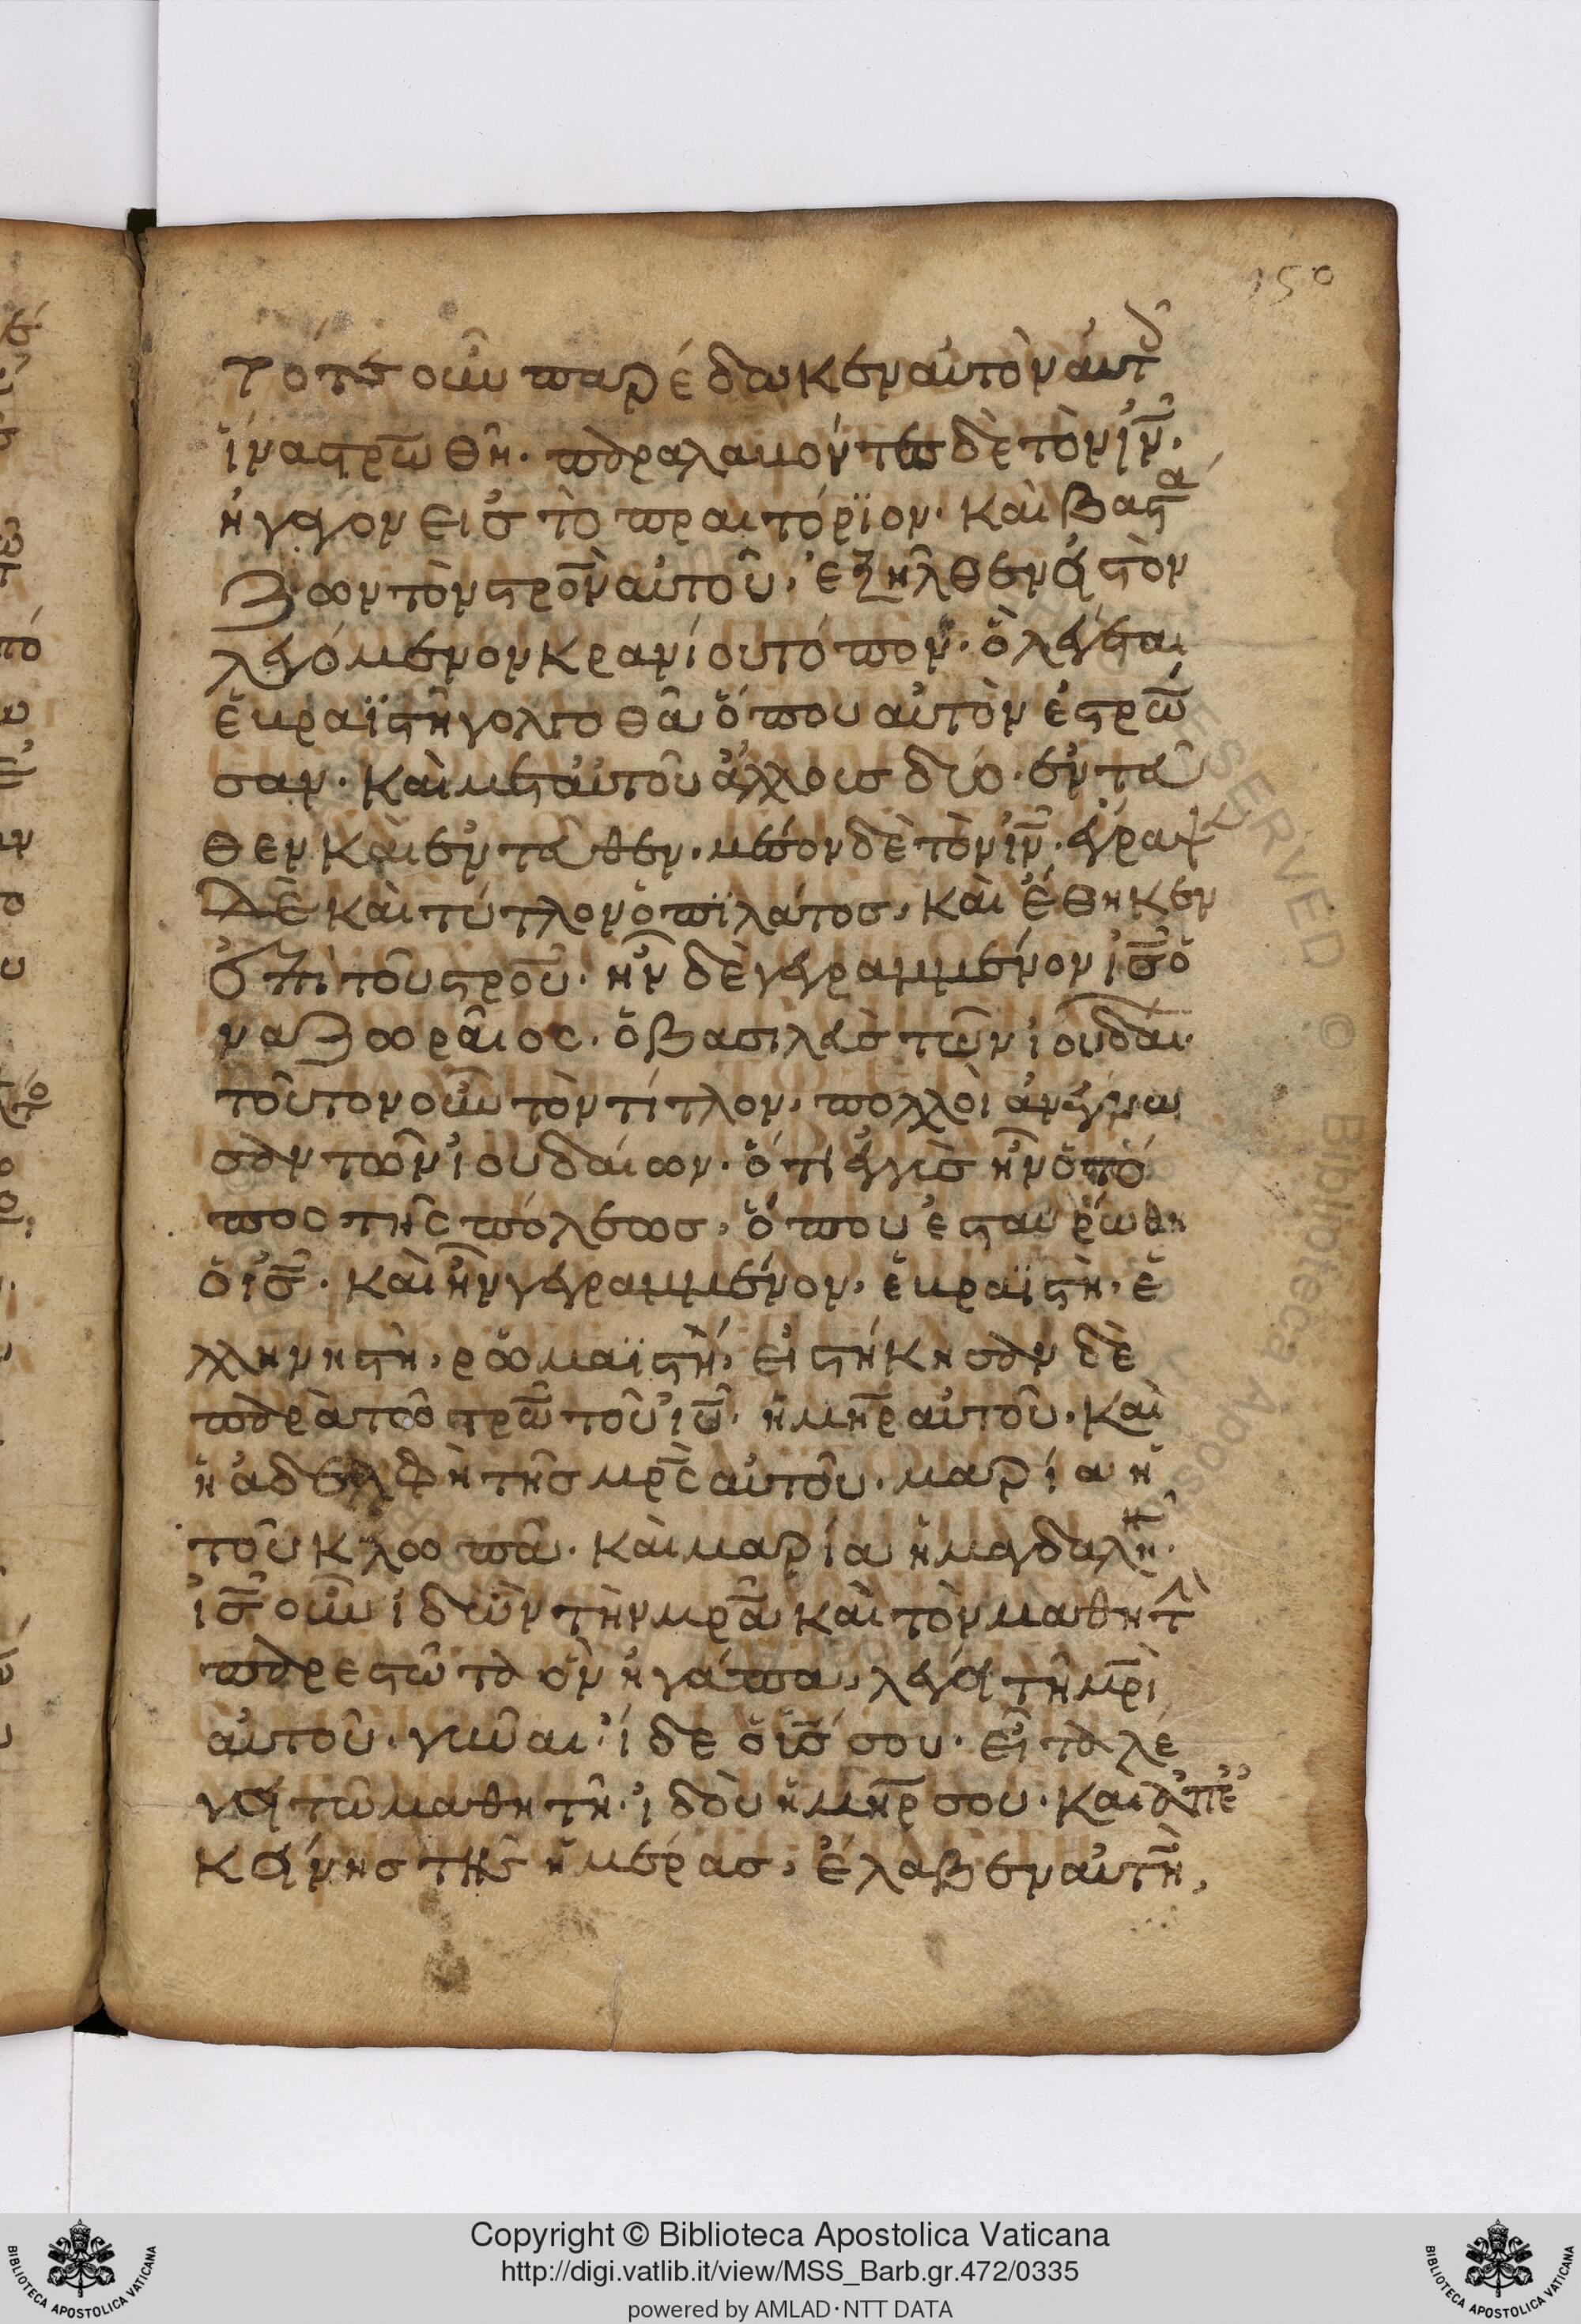 150
τότε οὖν παρέδωκεν αὐτὸν αὐτ
ἵνα στρ̅ω̅θῆ· παραλαμόντες δὲ τὸν ἰν̅·
ἤγαγον εἰς τὸ πραιτόριον· καὶ βαστα
ζων τὸν στρο̅ν αὐτοῦ, ἐξῆλθεν εἰς τὸν
λεγόμενον κρανίου τόπον· ὃ λέγεται
ἑυραϊστῆ γολγοθᾶ ὅπου αὐτὸν ἐστρώ̅
σαν· καὶ μετ αὐτοῦ ἄλλους δύο· ἐντεῦ
θεν καὶ ἐντεῦθεν· μέσον δὲ τὸν ἰν̅· ἔγραψε
δὲ καὶ τύτλον ὁ πϊλάτος, καὶ ἔθηκεν
ἐπὶ τοῦ στρο̅υ· ἦν δὲ γεγραμμένον ἰς̅ ὁ
ναζωραῖος· ὁ βασιλεὺς τῶν ἰουδαι·
τοῦτον οὖν τὸν τίτλον, πολλοὶ ἀνέγνω
σαν τῶν ἰουδαίων· ὅτι ἐγγὺς ἦν ὁ τό
πος τῆς πόλεως, ὅπου ἐσταυρώθη
ὁ ἰς̅· καὶ ἦν γεγραμμένον, ἑυραϊστὴ, ἑ
λληνηστὴ, ῥωμαϊστὴ, εἱστήκησαν δὲ
παρὰ τῶ στρω̅ τοῦ ἰυ̅· ἡ μηρ̅ αὐτοῦ· καὶ
ἡ ἀδελφὴ τῆς μρ̅ς αὐτοῦ· μαρία ἡ
τοῦ κλωπᾶ· καὶ μαρία ἡ μαγδαληνή·
ἰς̅ οὖν ἰδὼν τὴν μρ̅α καὶ τὸν μαθητ
παρεστῶτα ὃν ἠγάπα, λέγει τῆ μρ̅ι
αὐτοῦ· γύναι ἴδε ὁ ὑς̅ σου· εἶτα λέ
γει τῶ μαθητῆ· ἰδοὺ ἡ μηρ̅ σου· καὶ ἀπ ἐ
κείνης τῆς ἡμέρας, ἔλαβεν αὐτὴν,
Copyright © Biblioteca Apostolica Vaticana
http://digi.vatlib.it/view/MSS_Barb.gr.472/0335
powered by AMLAD·NTT DATA